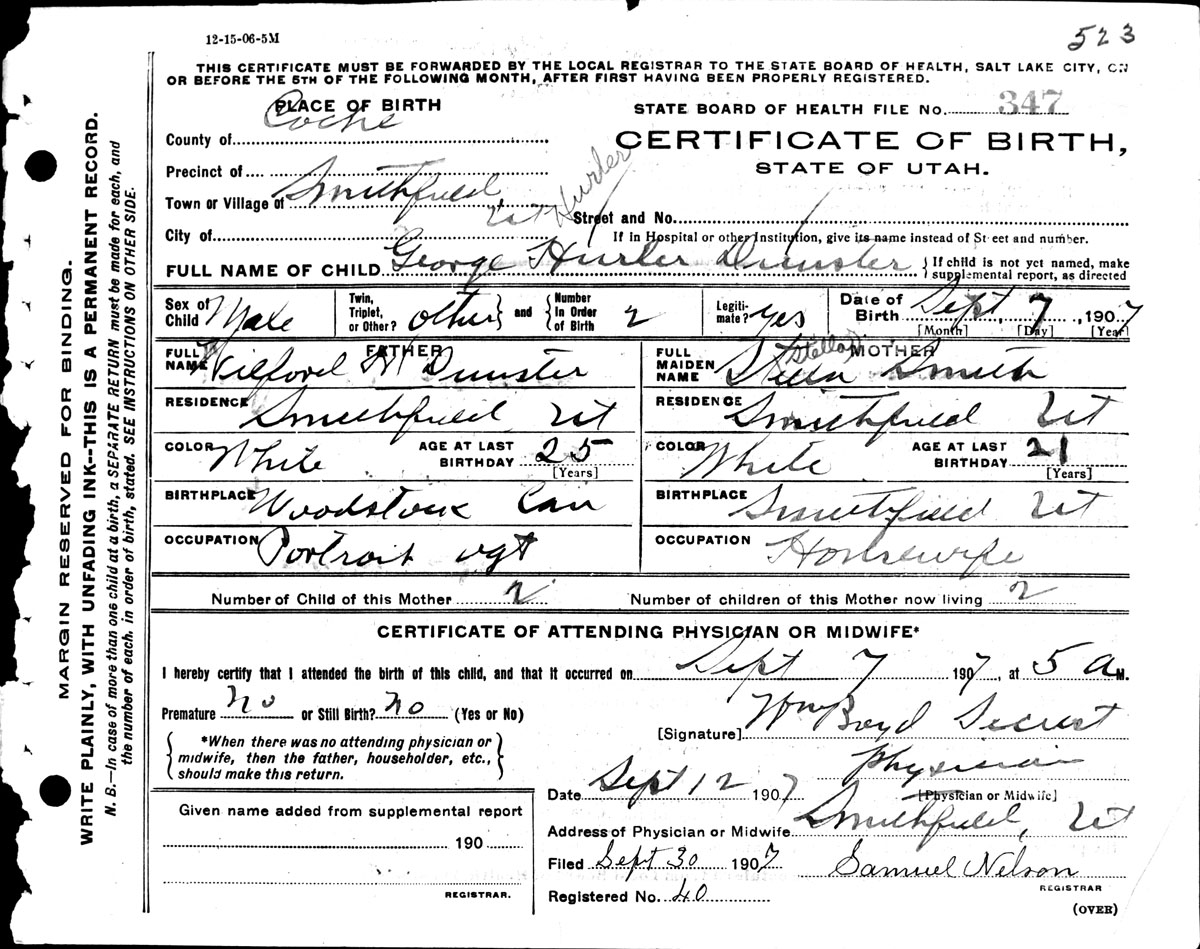 12-15-06-5M
523
THIS CERTIFICATE MUST BE FORWARDED BY THE LOCAL REGISTRAR TO THE STATE BOARD OF HEALTH, SALT LAKE CITY, ON
OR BEFORE THE 5TH OF THE FOLLOWING MONTH, AFTER FIRST HAVING BEEN PROPERLY REGISTERED.
PLACE OF BIRTH
STATE BOARD OF HEALTH FILE No. 347
County of Cache
CERTIFICATE OF BIRTH,
STATE OF UTAH.
Precinct of
Town or Village of Smithfield
Ut Hurler
Street and No.
City of
If in Hospital or other Institution, give its name instead of Street and number.
FULL NAME OF CHILD George Hurler
{If child is not yet named, make
supplemental report, as directed
Sex of Child Male
Twin, Triplet, or Other? other} and {Number In Order of Birth 2
Legitimate? Yes
Date of Birth Sept 7, 1907
[Month] [Day] [Year]
FATHER
MOTHER
FULL NAME Wilford H
FULL MAIDEN NAME Stella Stella Smith
RESIDENCE Smithfield Ut
RESIDENCE Smithfield Ut
COLOR White AGE AT LAST BIRTHDAY 25 [Years]
COLOR White AGE AT LAST BIRTHDAY 21 [Years]
BIRTHPLACE Woodstock Can
BIRTHPLACE Smithfield Ut
OCCUPATION Portrait agt
OCCUPATION Housewife
Number of Child of this Mother 2 Number of children of this Mother now living 2
CERTIFICATE OF ATTENDING PHYSICIAN OR MIDWIFE*
I hereby certify that I attended the birth of this child, and that it occurred on Sept 7 1907, at 5 a M.
Premature no or Still Birth? no (Yes or No)
[Signature] Wm Boyd Secrist
*When there was no attending physician or
midwife, then the father, householder, etc.,
should make this return.
Physician
[Physician or Midwife]
Date Sept 12 1907
Given name added from supplemental report
190
REGISTRAR.
Address of Physician or Midwife Smithfield, Ut
Filed Sept 30 1907 Samuel Nelson
REGISTRAR
Registered No. 40
(OVER)
MARGIN RESERVED FOR BINDING.
WRITE PLAINLY, WITH UNFADING INK--THIS IS A PERMANENT RECORD.
N. B.—In case of more than one child at a birth, a SEPARATE RETURN must be made for each, and
the number of each, in order of birth, stated. SEE INSTRUCTIONS ON OTHER SIDE.